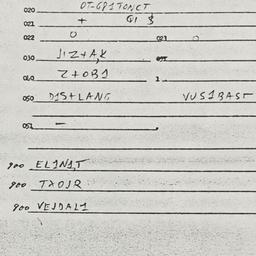 020 OT-GP1TONCT
021 + GI $
022 O 023 O
030 JIZ+A,K
040 Z+OB1 1
050 D1S+LANG VUS1BAST
052 —
900 EL1N1,T
900 TXOJR
900 VEJDAL1